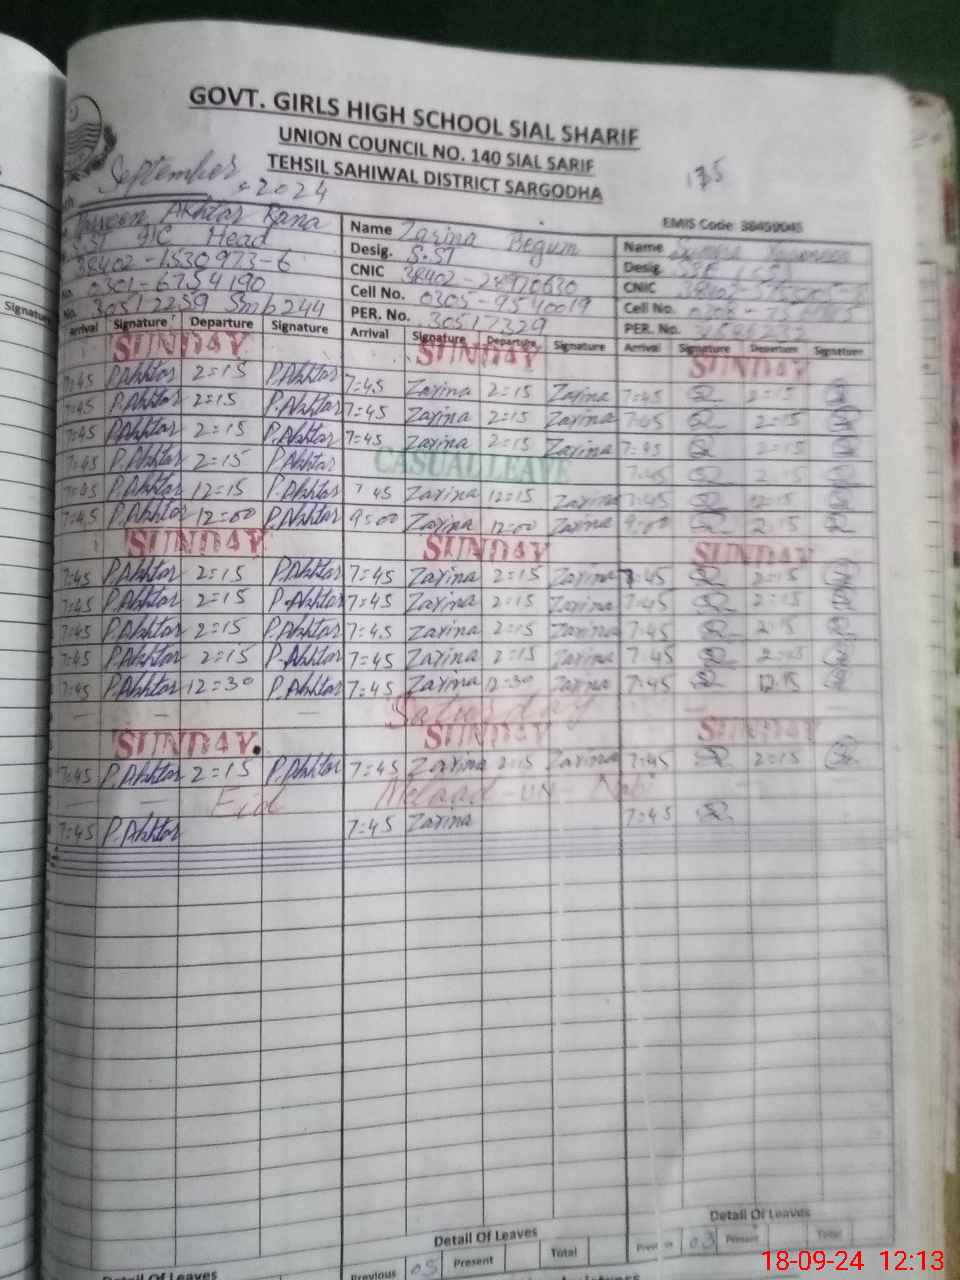 GOVT. GIRLS HIGH SCHOOL SIAL SHARIF
UNION COUNCIL NO. 140 SIAL SARIF
TEHSIL SAHIWAL DISTRICT SARGODHA
September 2024
175
EMIS Code:
Akhtar Rana Name Zarina Begum Name
SST I/C Head Desig. S.ST Desig.
38402-1530973-6 CNIC CNIC
0301-6754190 Cell No. 0305-9540019 Cell No.
30512259 Smb244 PER. No. 30517329 PER. No.
Arrival Signature Departure Signature Arrival Signature Departure Signature Arrival Signature Departure Signature
SUNDAY SUNDAY SUNDAY
7:45 P.Akhtar 2=15 P.Akhtar 7=45 Zarina 2=15 Zarina 7=45 2=15
7=45 P.Akhtar 2=15 P.Akhtar 7=45 Zarina 2=15 Zarina 7=45 2=15
7=45 P.Akhtar 2=15 P.Akhtar 7=45 Zarina 2=15 Zarina 7=45 2=15
7=45 P.Akhtar 2=15 P.Akhtar CASUAL LEAVE 7=45 2=15
7=45 P.Akhtar 12=15 P.Akhtar 7 45 Zarina 12=15 Zarina 7=45 12=15
7=45 P.Akhtar 12=00 P.Akhtar 9=00 Zarina 12=00 Zarina 9=00 2=15
SUNDAY SUNDAY SUNDAY
7=45 P.Akhtar 2=15 P.Akhtar 7=45 Zarina 2=15 Zarina 7=45 2=15
7=45 P.Akhtar 2=15 P.Akhtar 7=45 Zarina 2=15 Zarina 7=45 2=15
7=45 P.Akhtar 2=15 P.Akhtar 7=45 Zarina 2=15 Zarina 7=45 2=15
7=45 P.Akhtar 2=15 P.Akhtar 7=45 Zarina 2=15 Zarina 7=45
7=45 P.Akhtar 12=30 P.Akhtar 7=45 Zarina 12=30 Zarina 7=45 12=15
Saturday
SUNDAY SUNDAY SUNDAY
7=45 P.Akhtar 2=15 P.Akhtar 7=45 Zarina 2=15 Zarina 7=45 2=15
Eid Melaad-un-Nabi
7=45 P.Akhtar 7=45 Zarina 7=45
Detail Of Leaves Detail Of Leaves Detail Of Leaves
Previous 05 Present Total 03 Present Total
18-09-24 12:13